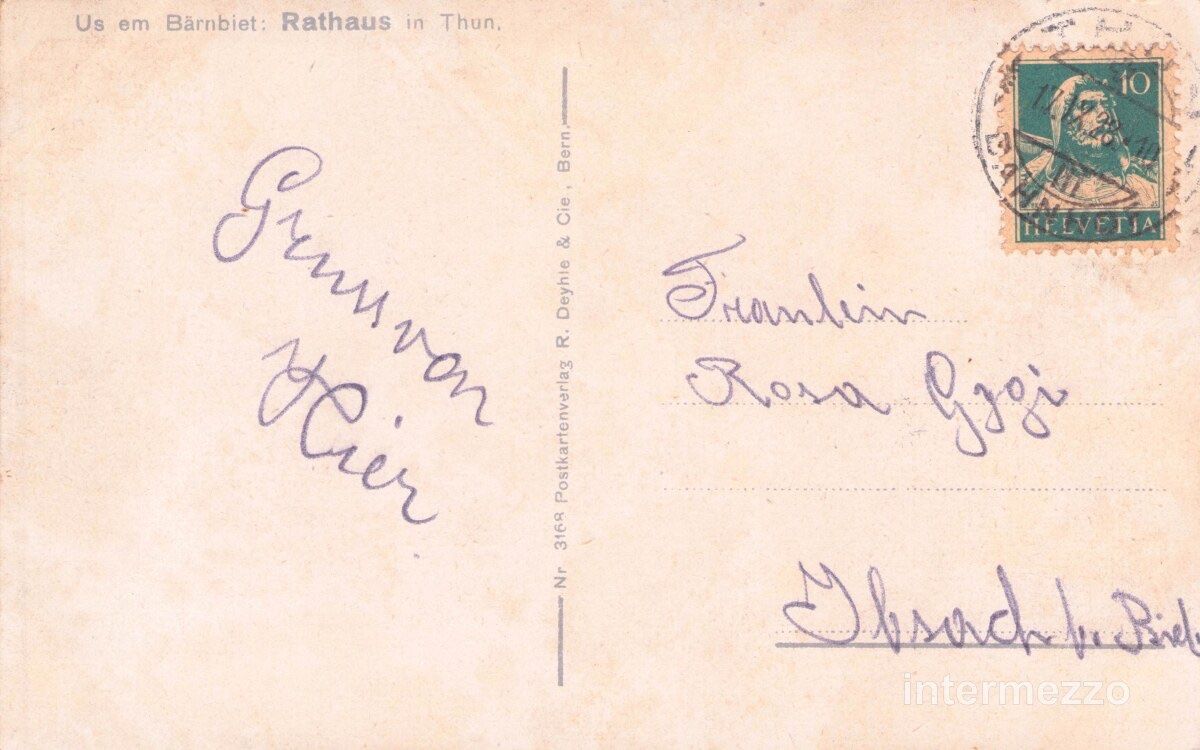 Us em Bärnbiet: Rathaus in Thun.
Gruss von
Hier
Nr 3168 Postkartenverlag R. Deyhle & Cie, Bern.
10
HELVETIA
Fraulein
Rosa Gygi
b. Biel
intermezzo